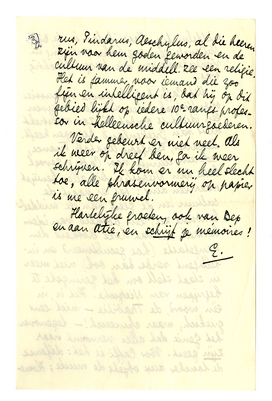 rus, Pindarus, Aeschylus, al die heeren
zijn voor hem goden geworden en de
cultuur van de middell. zee een religie.
Het is jammer, voor iemand die zoo
fijn en intelligent is, dat hij op dit
gebied lijkt op iedere 10e rangs profes-
sor in Helleensche cultuurgoederen.
Verder gebeurt er niet veel. Als
ik weer op dreef ben, ga ik weer
schrijven. Ik kom er nu heel slecht
toe, alle phrasenvormerij op papier
is me een gruwel.
Hartelijke groeten, ook van Bep
en aan Atie, en schrijf je memoires!
E.